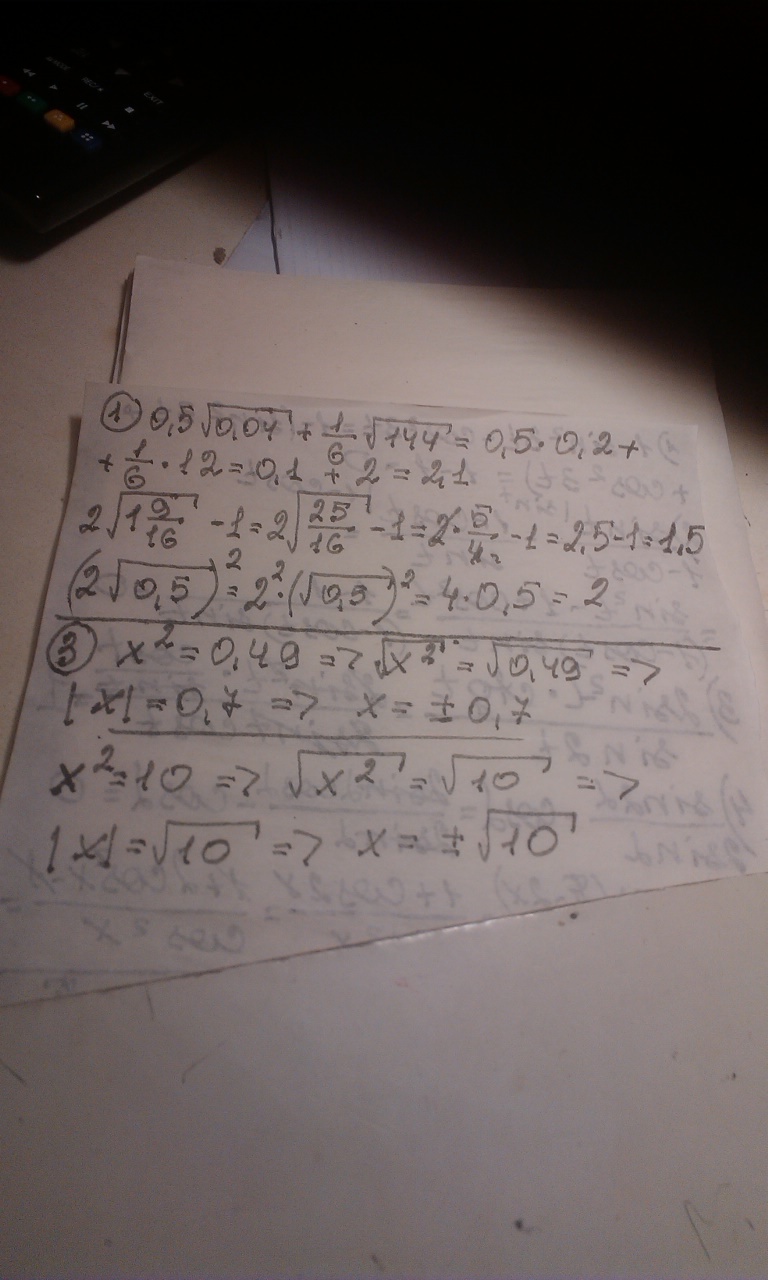 EXIT
① 0,5√0,04 + 1/6 √144 = 0,5·0,2+
+ 1/6 · 12 = 0,1 + 2 = 2,1
2√1 9/16 -1 = 2√25/16 -1 = 2·5/4₂ -1 = 2,5-1=1,5
(2√0,5)² = 2²·(√0,5)² = 4·0,5 = 2
③ x² = 0,49 => √x² = √0,49 =>
|x| = 0,7 => x = ±0,7
x² = 10 => √x² = √10 =>
|x| = √10 => x = ±√10